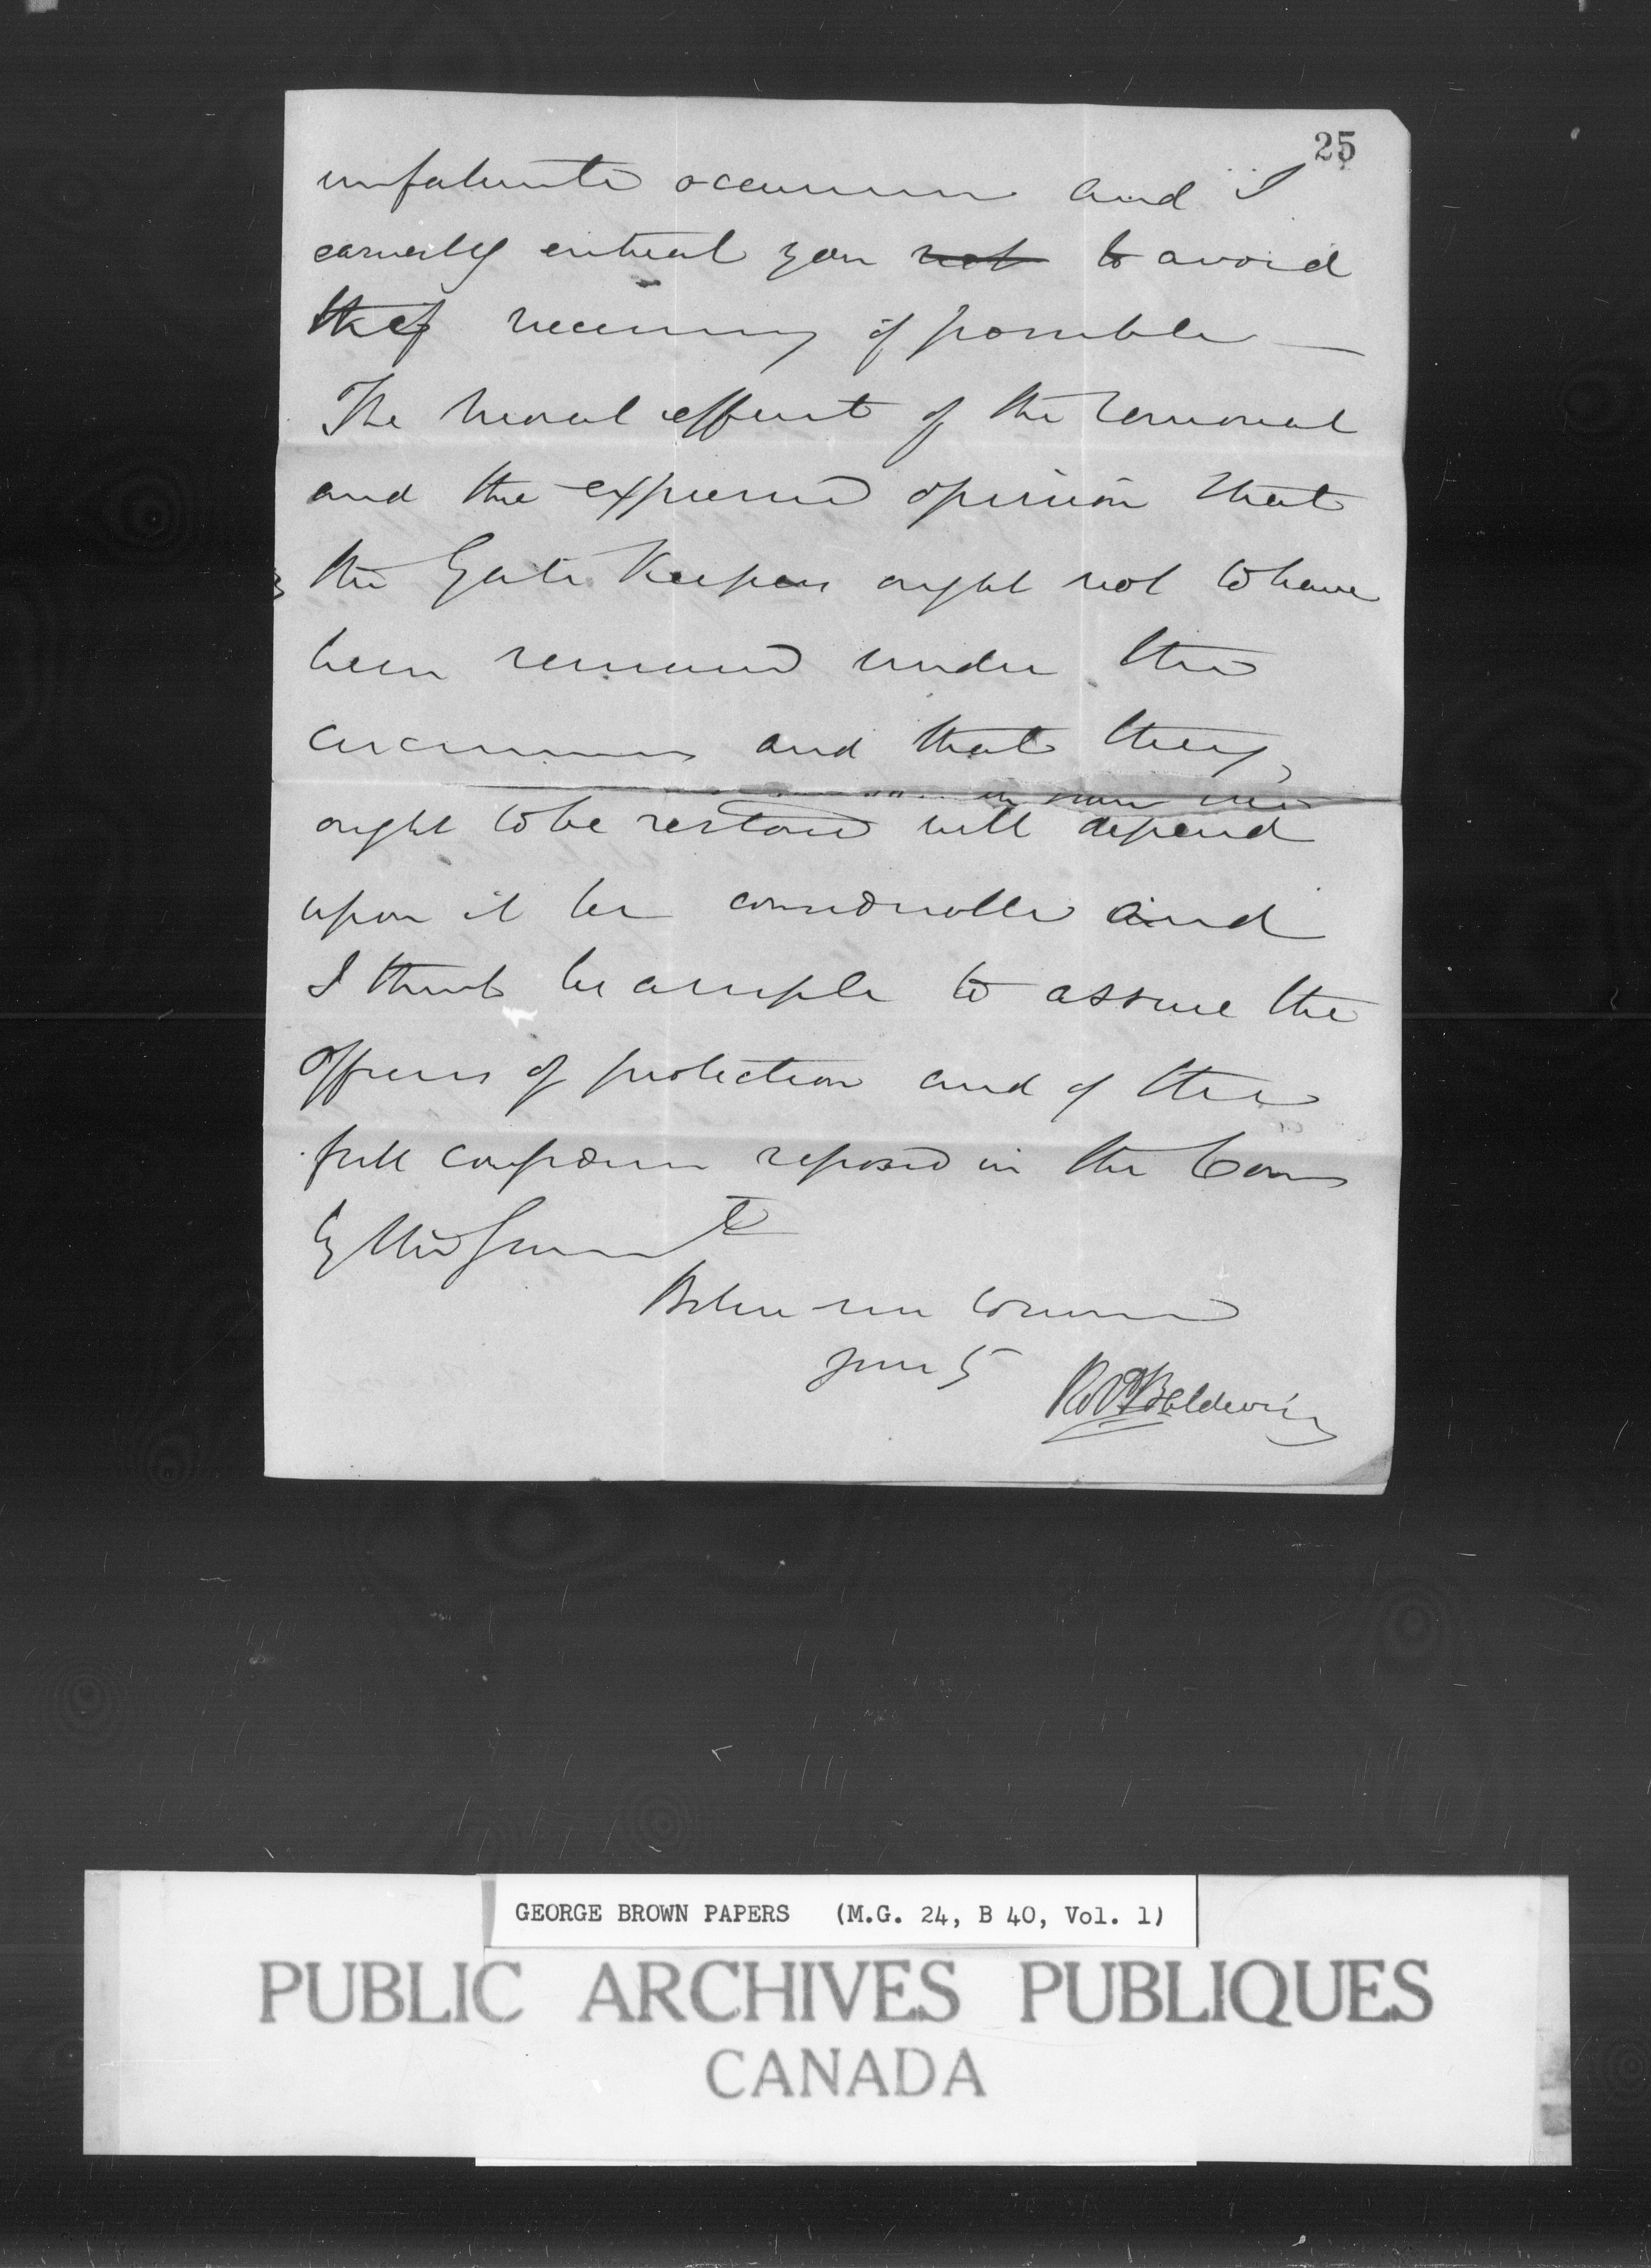 25
unfortunate occurrence and I
earnestly entreat you not to avoid
necessity if possible —
The moral effect of the removal
and the expressed opinion that
the Gate Keepers ought not to have
been removed under the
circumstances and that they
ought to be restored will depend
upon it be considerable and
I think be ample to assure the
Officers of protection and of the
full confidence reposed in the Com
by the Government
Believe me
Yours
Rob Baldwin
GEORGE BROWN PAPERS (M.G. 24, B 40, Vol. 1)
PUBLIC ARCHIVES PUBLIQUES
CANADA